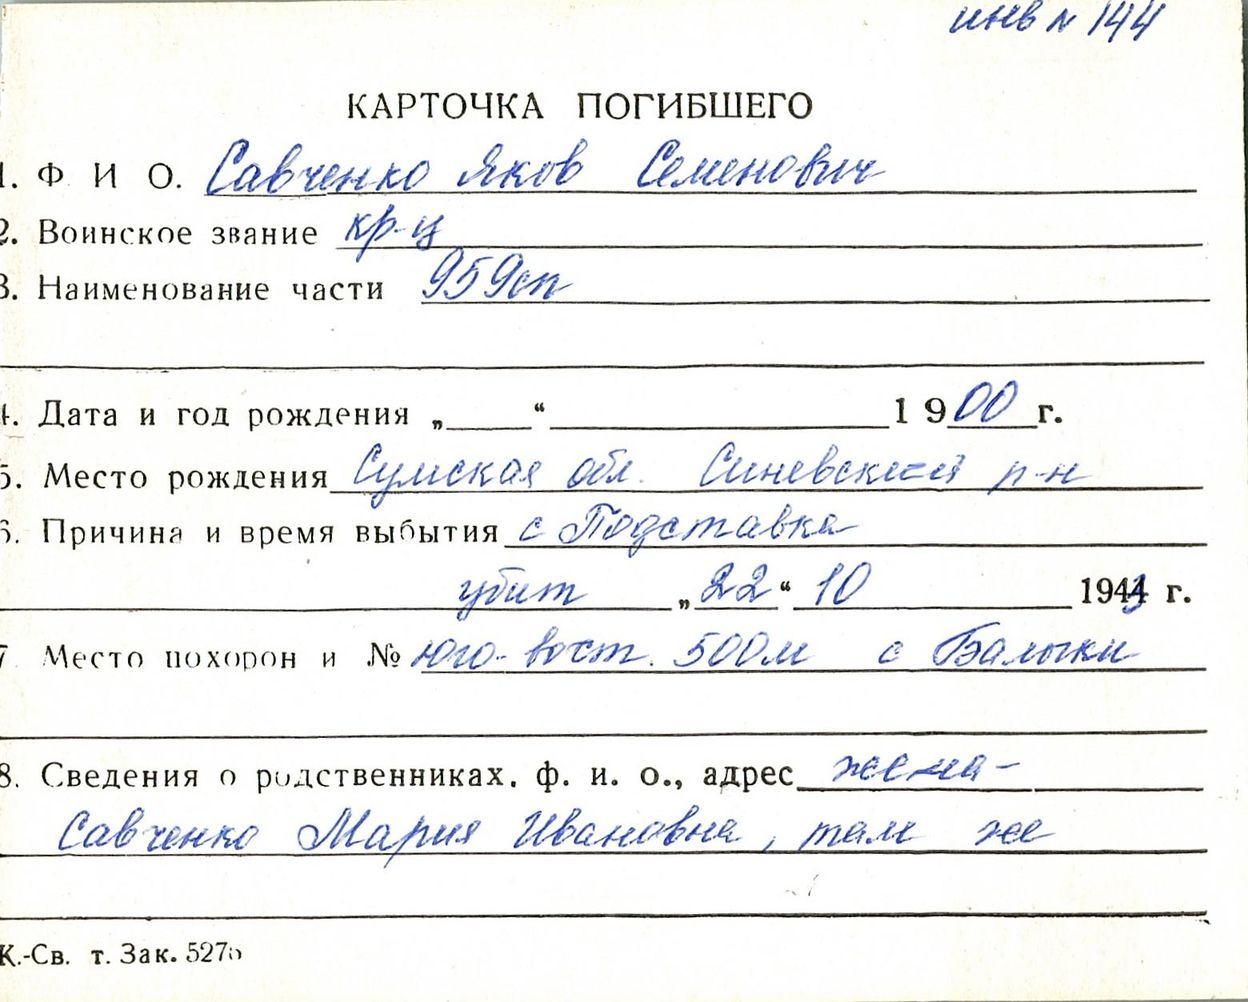 инв N 144
КАРТОЧКА ПОГИБШЕГО
1. Ф И О. Савченко Яков Семенович
2. Воинское звание кр-ц
3. Наименование части 959сп
4. Дата и год рождения „ “ 1900 г.
5. Место рождения Сумская обл. Синевский р-н
6. Причина и время выбытия с Подставка
убит „22“ 10 1943 г.
7 Место похорон и № юго-вост. 500м с Балыки
8. Сведения о родственниках, ф. и. о., адрес жена-
Савченко Мария Ивановна, там же
К.-Св. т. Зак. 5275